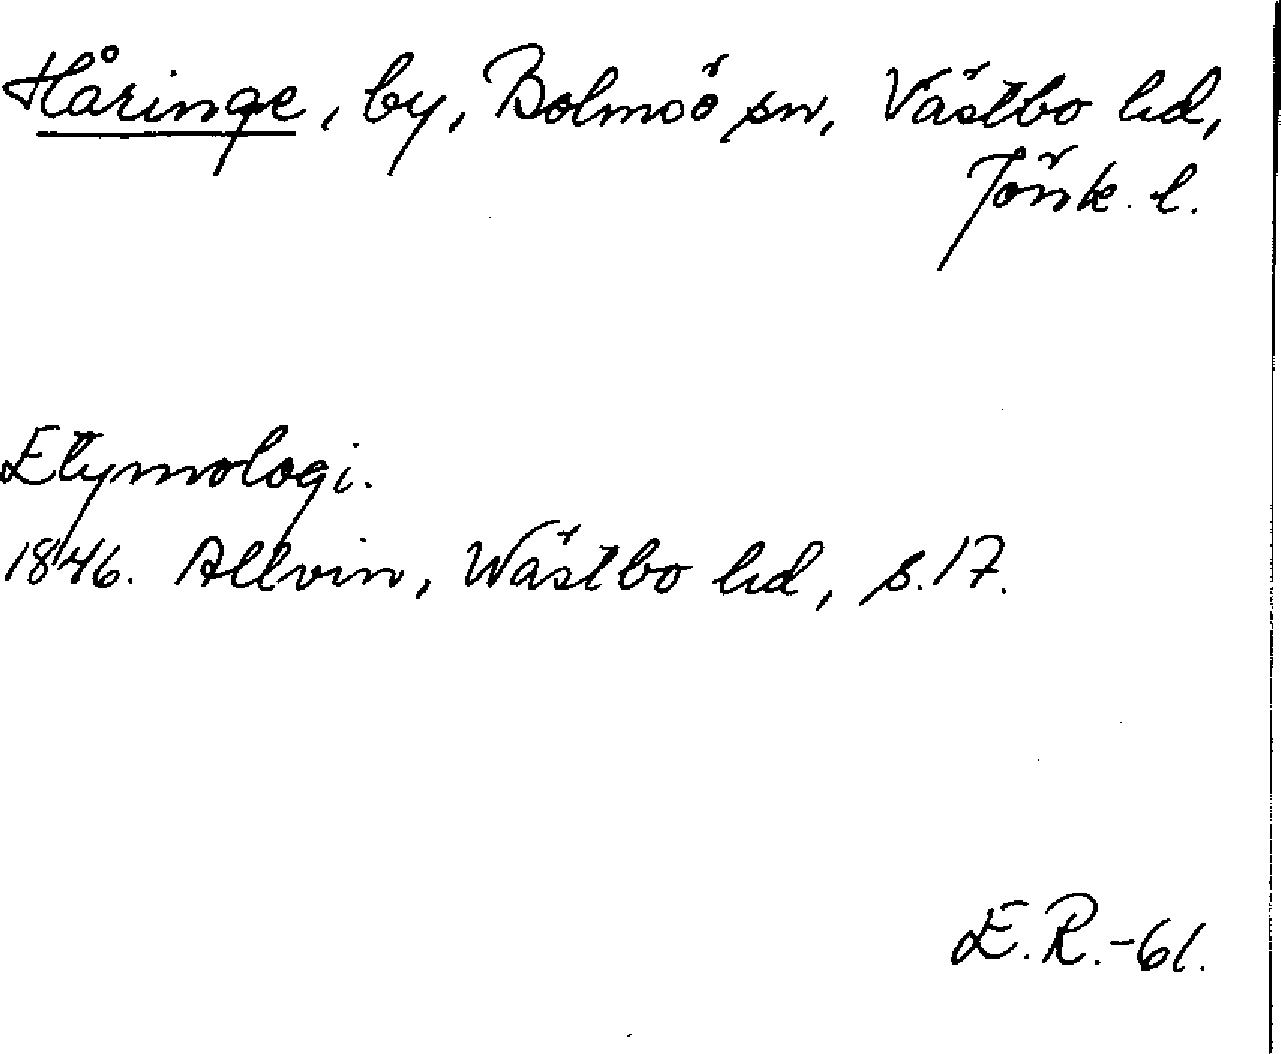 Håringe, by, Bolmsö sn, Västbo hd,
Jönk. l.
Etymologi.
1846. Allvin, Wästbo hd, s. 17.
E.R.-61.